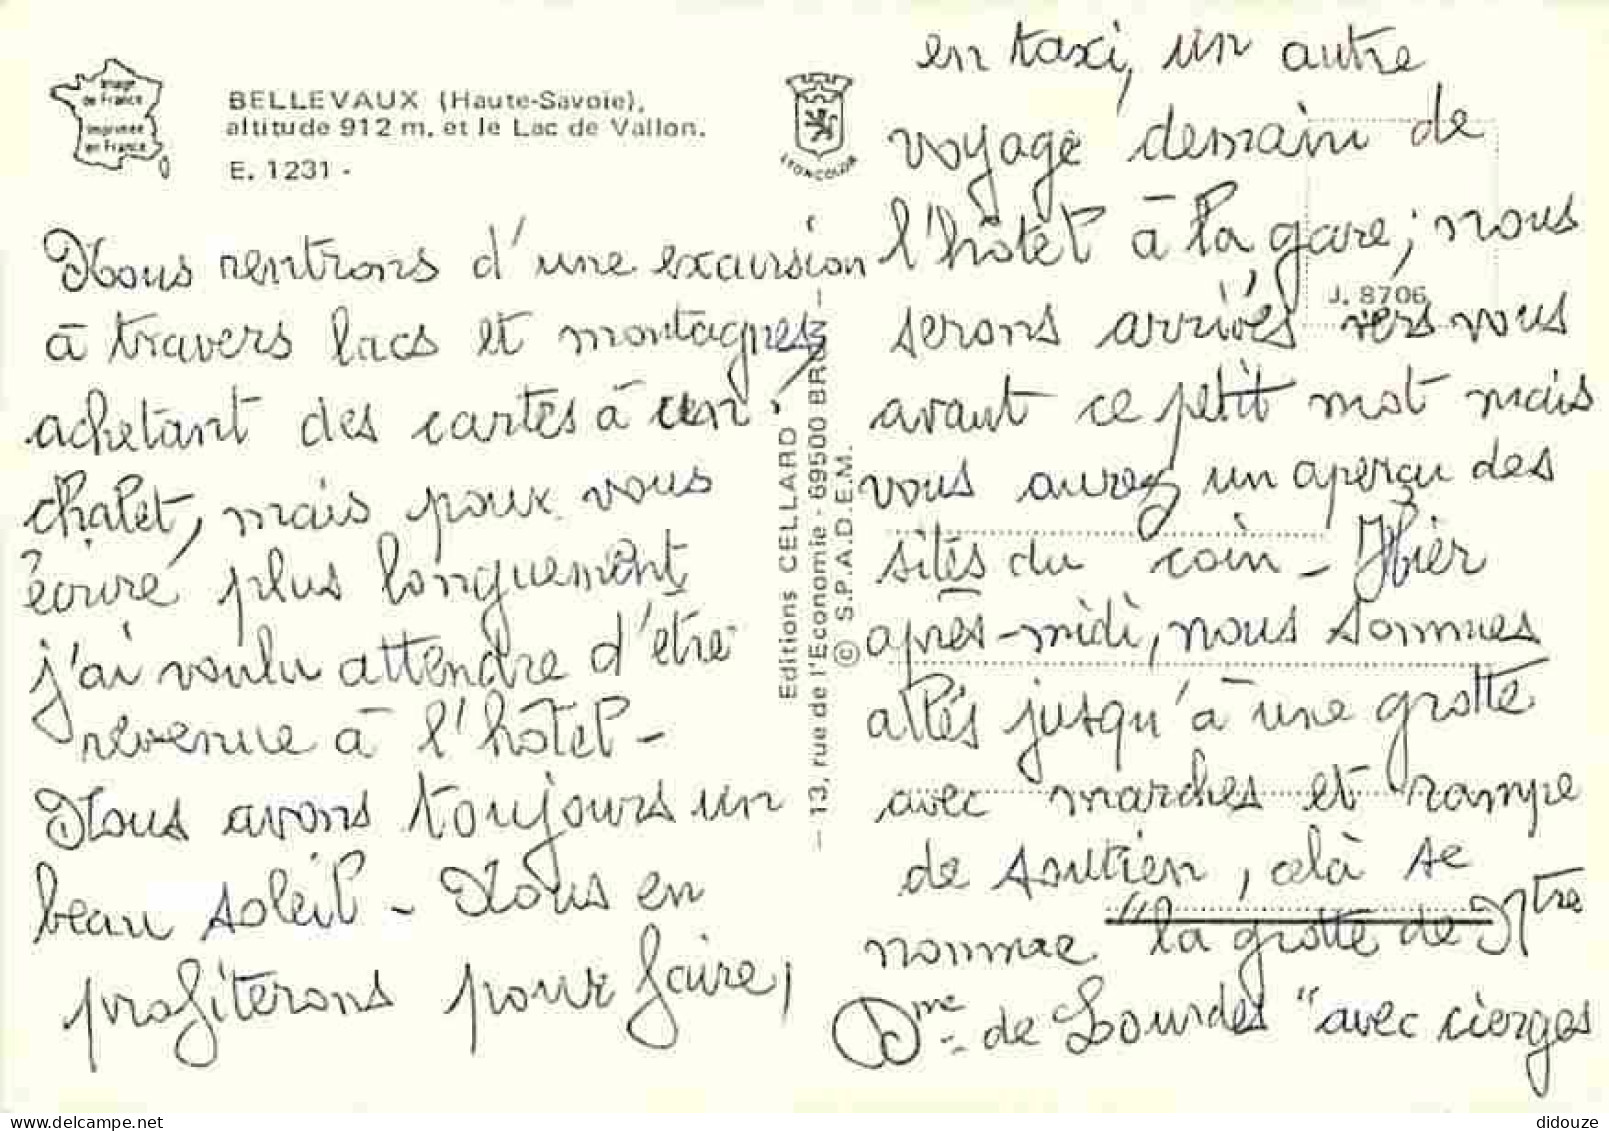 Image
de France
imprimée
en France
BELLEVAUX (Haute-Savoie),
altitude 912 m. et le Lac de Vallon.
E. 1231 -
LYONCOLOR
Nous rentrons d'une excursion
à travers lacs et montagnes,
achetant des cartes à un
chalet, mais pour vous
écrire plus longuement
j'ai voulu attendre d'être
revenue à l'hôtel -
Nous avons toujours un
beau soleil - Nous en
profiterons pour faire,
Editions CELLARD
- 13, rue de l'Economie - 69500 BRON -
© S.P.A.D.E.M.
en taxi, un autre
voyage demain de
l'hôtel à la gare; nous
J. 8706
serons arrivés vers vous
avant ce petit mot mais
vous aurez un aperçu des
sites du coin - Hier
après-midi, nous sommes
allés jusqu'à une grotte
avec marches et rampe
de soutien, celà se
nomme "la grotte de Ntre
Dme de Lourdes" avec cierges
didouze